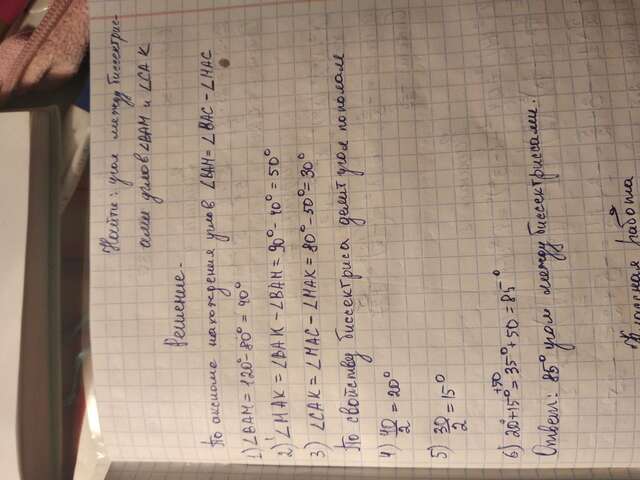 Найти: угол между биссектрис-
ами углов ∠BAM и ∠CAK
Решение.
По аксиоме нахождения углов ∠BAM = ∠BAC - ∠MAC
1) ∠BAM = 120° - 80° = 40°
2) ∠MAK = ∠BAK - ∠BAM = 90° - 40° = 50°
3) ∠CAK = ∠MAC - ∠MAK = 80° - 50° = 30°
По свойству биссектриса делит угол пополам
4) 40/2 = 20°
5) 30/2 = 15°
6) 20° + 15° +50 = 35° + 50 = 85°
Ответ: 85° угол между биссектриссами.
Классная работа